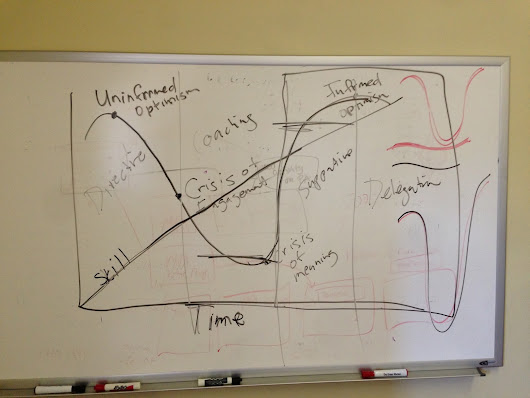 Uninformed
Optimism
Informed
Optimism
oaching
Directive
Crisis of
Engagement
Supportive
Delegation
Skill
Crisis
of
meaning
Time